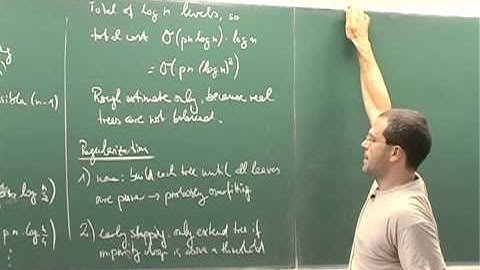 Total of log n levels, so
total cost O(pn log n) · log n
= O(pn (log n)²)
Rough estimate only, because real
trees are not balanced.
Regularization
1) none: build each tree until all leaves
are pure → probably overfitting
2) early stopping: only extend tree if
impurity drop is above a threshold
sible (n-1)
pn·log n/4